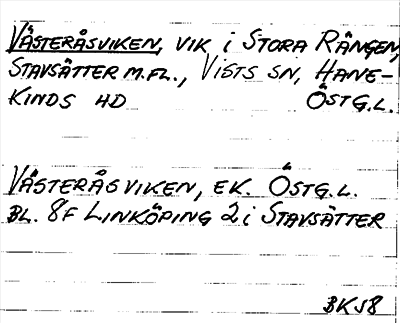 VÄSTERÅSVIKEN, VIK i STORA RÄNGEN,
STAVSÄTTER M.FL., VISTS SN, HANE-
KINDS HD ÖSTG.L.
VÄSTERÅSVIKEN, EK. ÖSTG.L.
BL. 8F LINKÖPING 2 i STAVSÄTTER
BK58